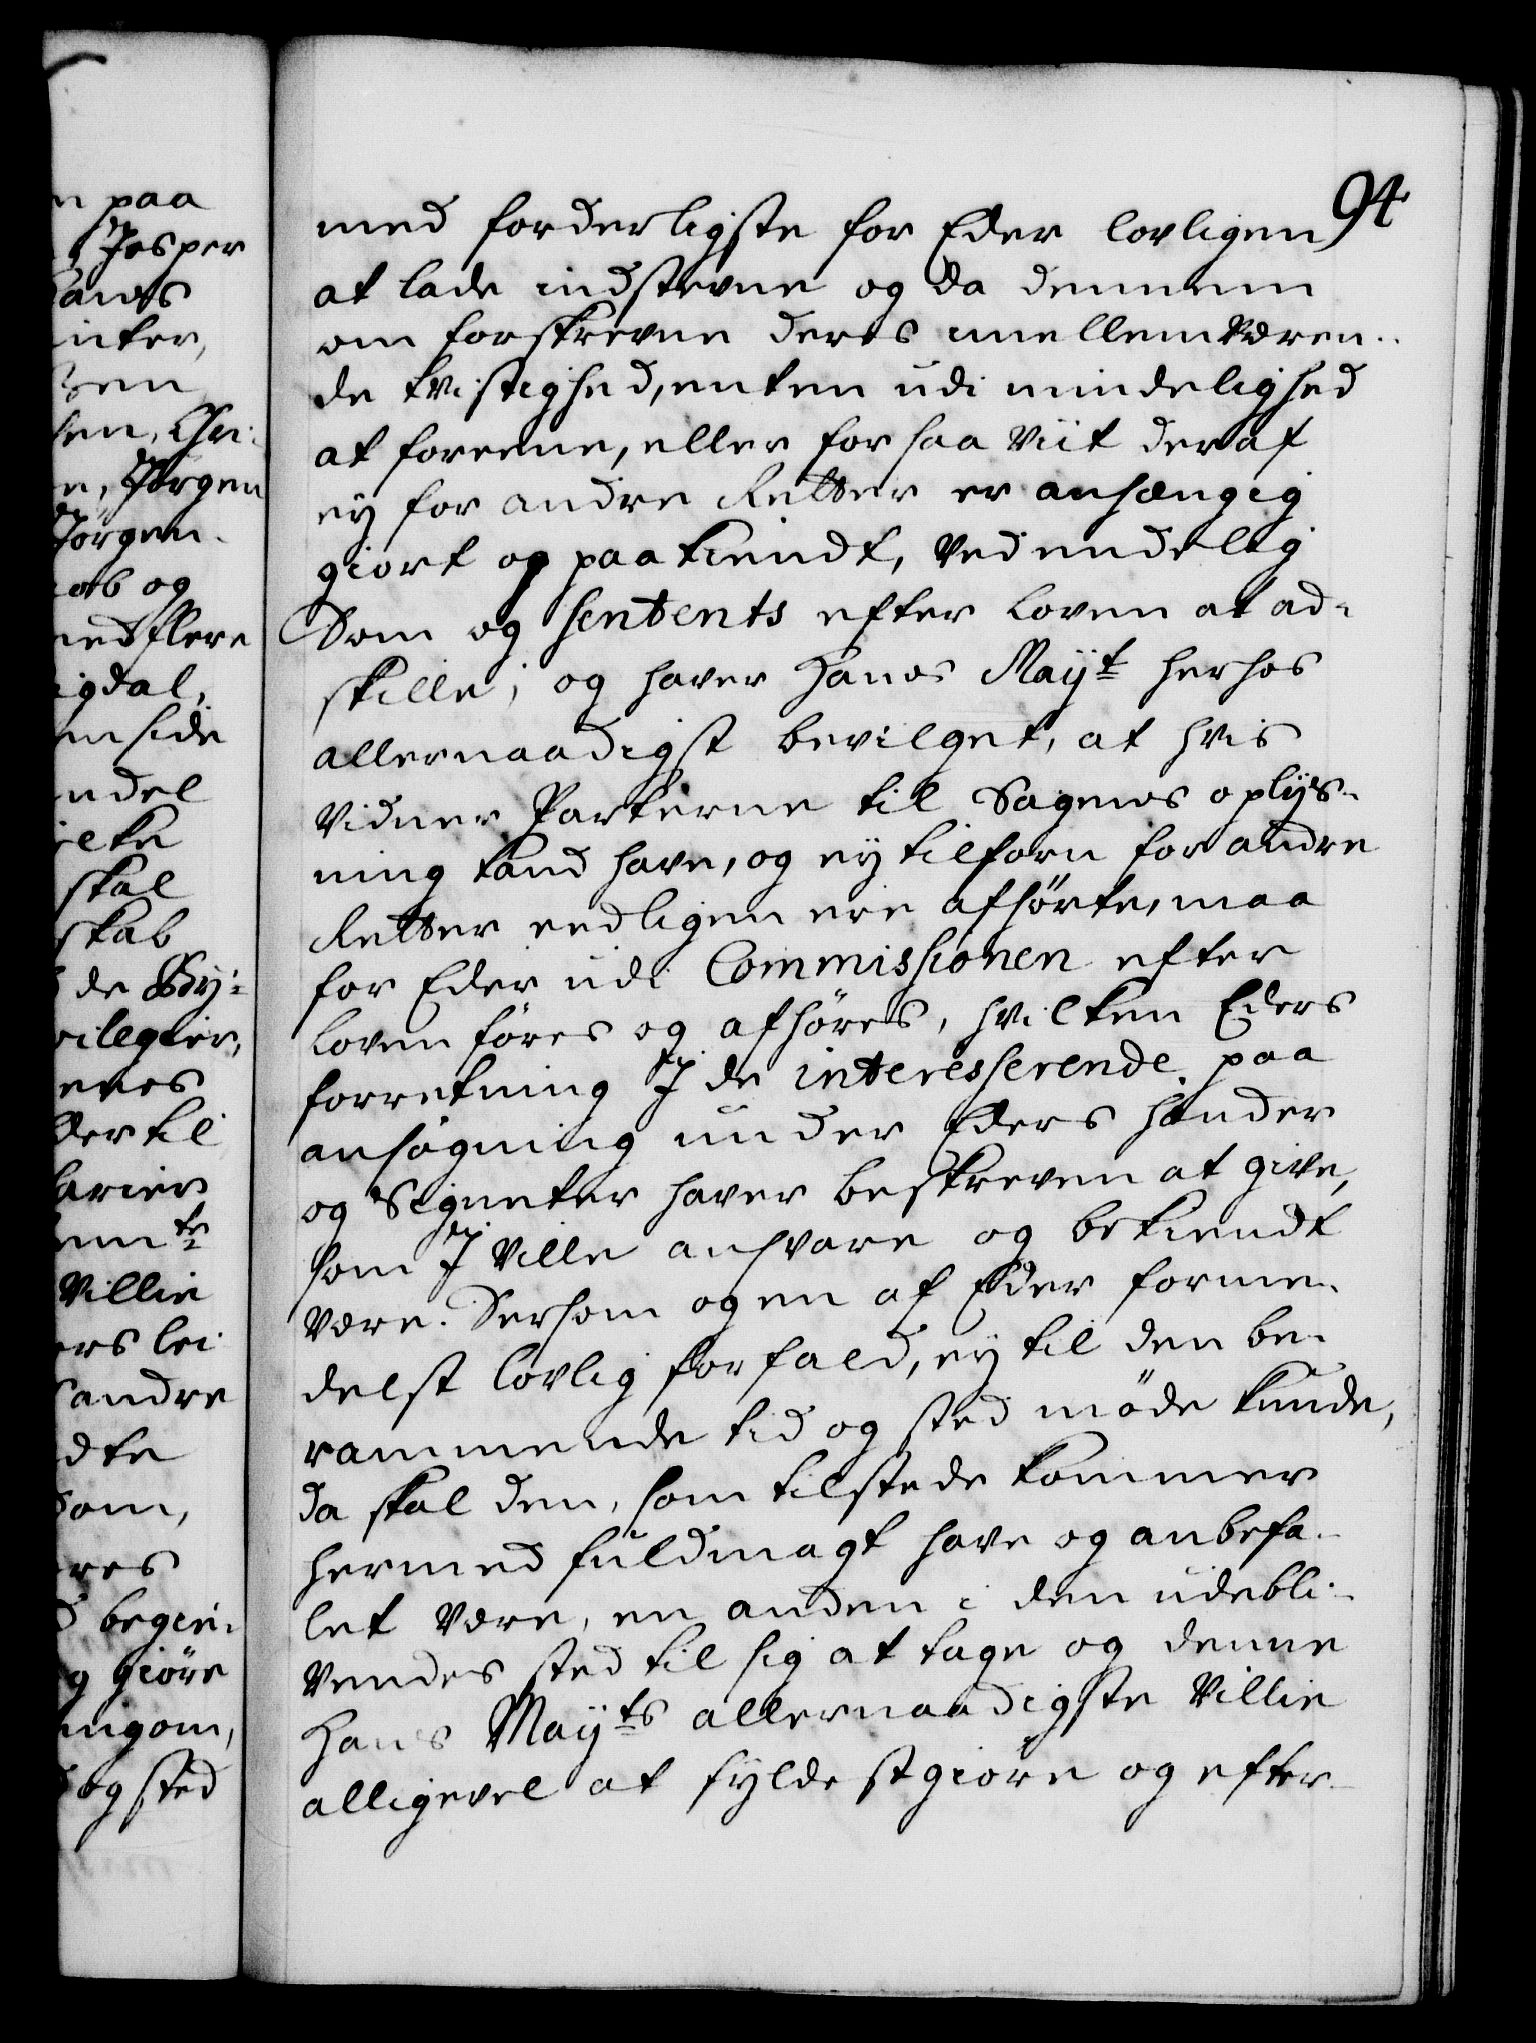 n paa
Jesper
hanss
inter,
sen
sen, Chri:
e, Jörgen
Jörgen
og
ned flere
igdal,
en side
endel
ilke
skal
skab
de By=
vilegier,
enes
der til
arier
villie
andre
dte
om,
res
begie=
og giöre
ningom,
og sted
94
med forderligste for Eder lovligen
at lade indstevne og da dennem
om forskrevne deres imellemværen=
de tvistighed, enten udi mindelighed
at foreene, eller for saa viit deraf
ey for andre Retter er anhængig
giort og paakiendt, ved endelig
Dom og Sentents efter loven at ad=
skille; og haver Hans Mayt herhos
allernaadigst bevilget, at hvis
vidner Parterne til Sagens oplys=
ning kand have, og ey tilforn for andre
Retter eedligen ere afhörte, maa
for Eder udi Commissionen efter
loven föres og afhöres, hvilken Eders
forretning I de interesserende paa
ansögning under Eders hænder
og Signeter haver beskreven at give,
som I ville ansvare og bekiendt
være. Dersom og en af Eder forme=
delst lovlig forfald, ey til den be=
rammende tid og sted möde kunde,
da skal den, som tilstede kommer
hermed fuldmagt have og anbefa=
let være, en anden i den udebli=
vendes sted til sig at tage og denne
Hans Mayts allernaadigste Villie
alligevel at fyldestgiöre og efter=